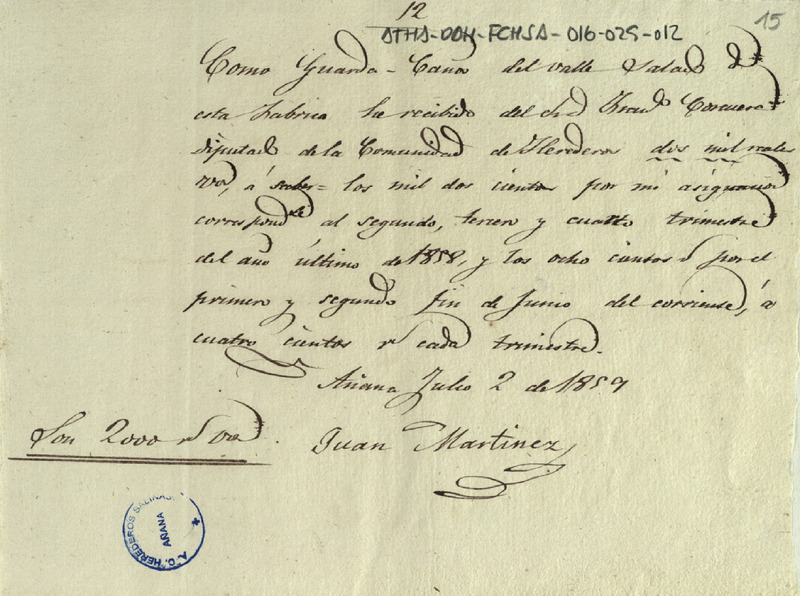 12
ATHA-DAH-FCHSA-016-029-012
15
Como Guarda-Caños del valle Salado de
esta Fabrica he recibido del
Diputado de la Comunidad de Herederos dos mil reales
von, á saber= los mil dos cientos por mi asignacion
correspond.te al segundo, tercero y cuarto trimestre
del año último de 1858, y los ocho cientos r.s por el
primero y segundo fin de Junio del corriente, á
cuatro cientos r.s cada trimestre.
Añana Julio 2 de 1859
Son 2000 r.s von
Juan Martinez
A.C. HEREDEROS SALINAS
AÑANA